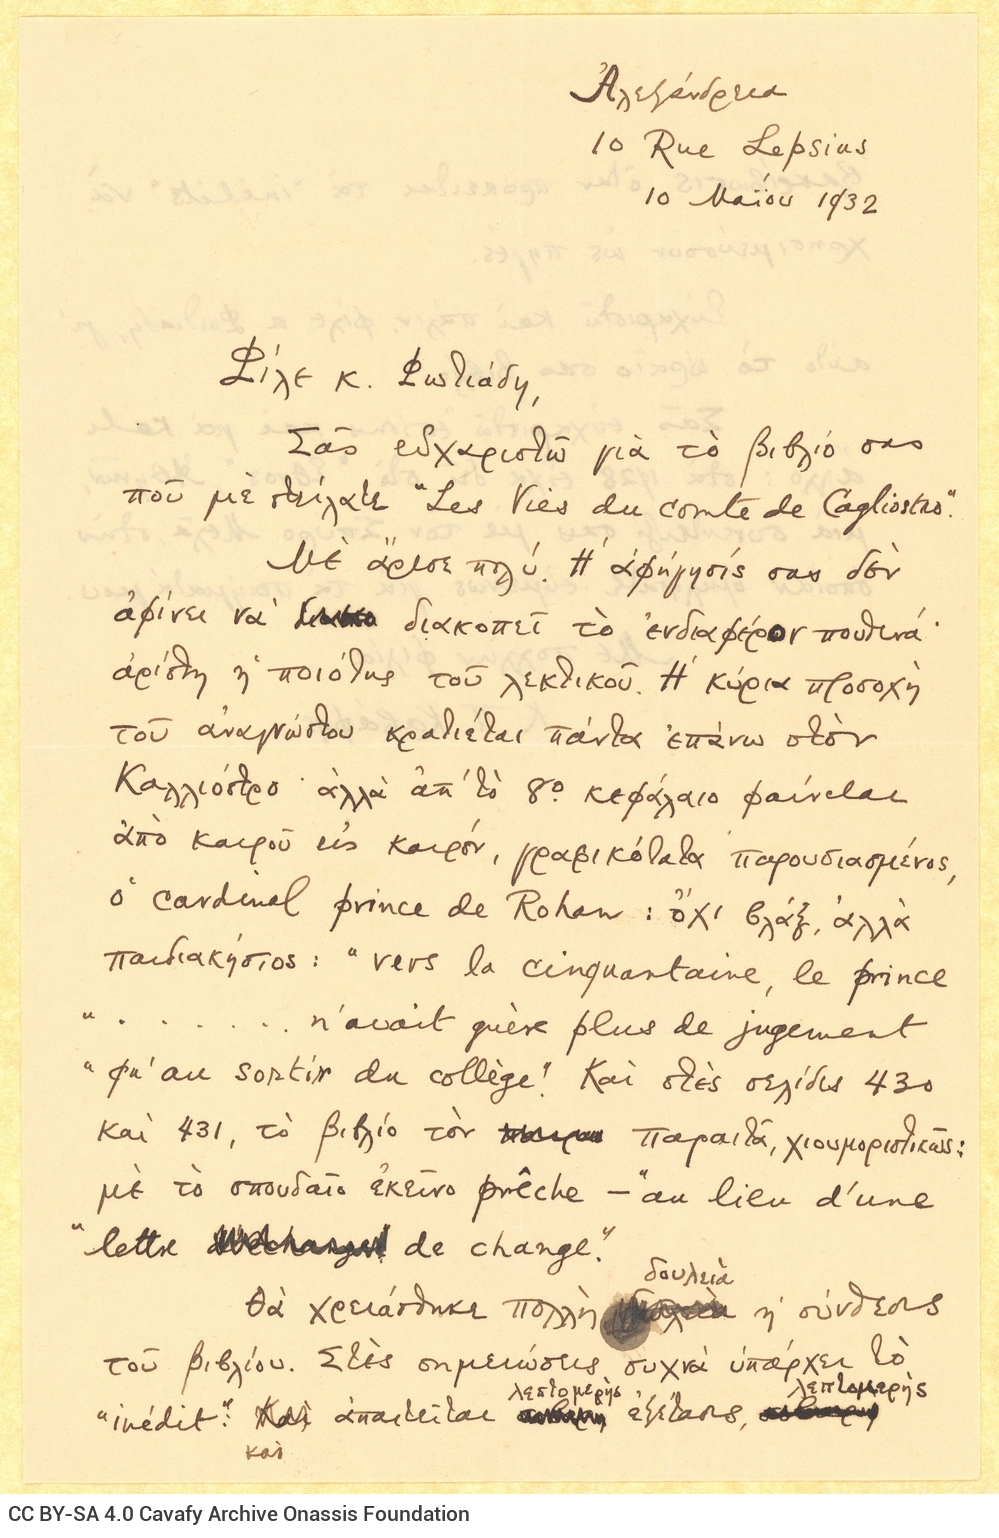 Ἀλεξάνδρεια
10 Rue Lepsius
10 Μαΐου 1932
Φίλε κ. Φωτιάδη,
Σᾶς εὐχαριστῶ γιὰ τὸ βιβλίο σας
ποῦ μὲ στείλατε "Les Vies du comte de Cagliostro".
Μὲ ἄρεσε πολύ. Ἡ ἀφήγησίς σας δὲν
ἀφίνει νὰ διακοπεῖ τὸ ἐνδιαφέρον πουθενά·
ἀρίστη ἡ ποιότης τοῦ λεκτικοῦ. Ἡ κύρια προσοχὴ
τοῦ ἀναγνώστου κρατιέται πάντα ἐπάνω στὸν
Καλλιόστρο· ἀλλὰ ἀπ' τὸ 8ο κεφάλαιο φαίνεται
ἀπὸ καιροῦ εἰς καιρόν, γραφικότατα παρουσιασμένος,
ὁ cardinal prince de Rohan: ὄχι βλάξ, ἀλλὰ
παιδιακήσιος: "vers la cinquantaine, le prince
" . . . . . . . n'avait guère plus de jugement
"qu'au sortir du collège". Καὶ στὲς σελίδες 430
καὶ 431, τὸ βιβλίο τὸν παραιτᾶ, χιουμοριστικῶς:
μὲ τὸ σπουδαῖο ἐκεῖνο prêche — "au lieu d'une
"lettre de change."
δουλειὰ
Θὰ χρειάσθηκε πολλὴ ἡ σύνθεσις
τοῦ βιβλίου. Στὲς σημειώσεις συχνὰ ὑπάρχει τὸ
λεπτομερὴς λεπτομερὴς
"inédit": Καὶ ἀπαιτεῖται ἐξέτασις,
καὶ
CC BY-SA 4.0 Cavafy Archive Onassis Foundation